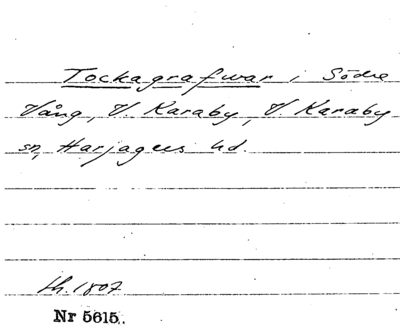 Tockagrafwar i Södre
Vång, V. Karaby, V. Karaby
sn, Harjagers hd.
1807
Nr 5615.